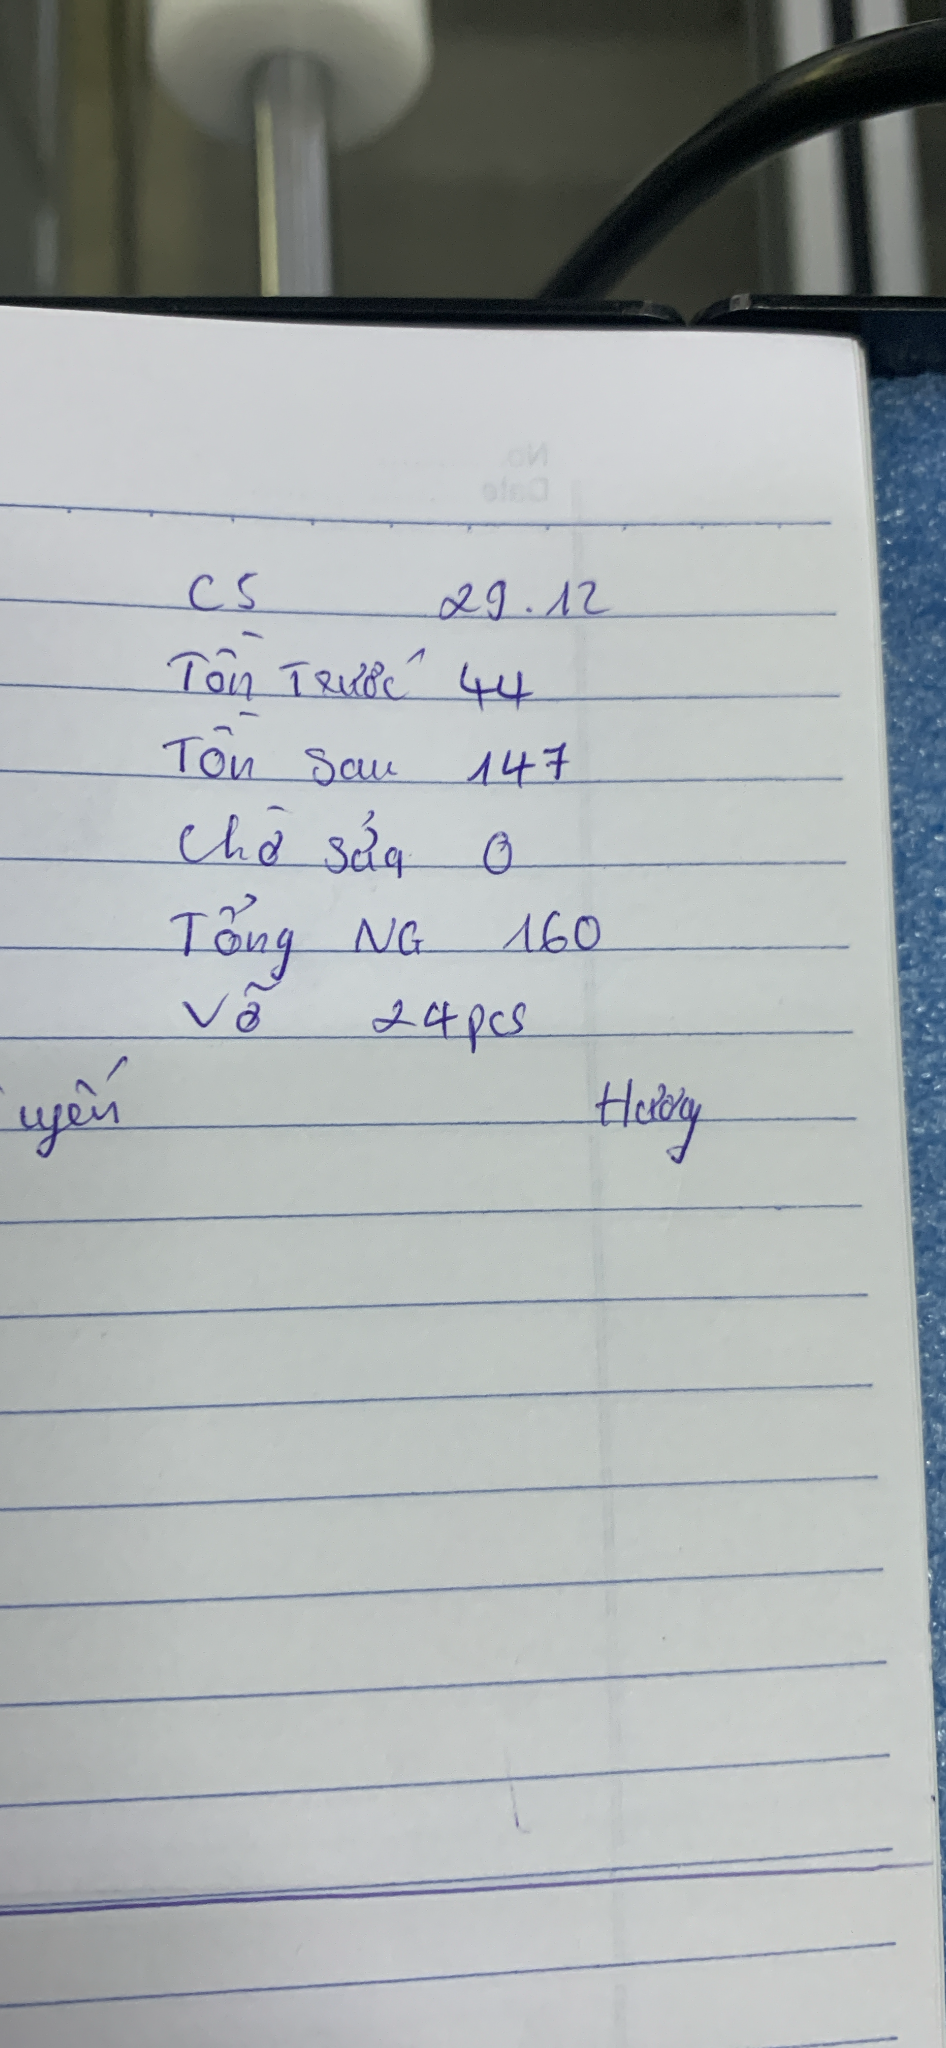 CS 29.12
Tồn Trước 44
Tồn sau 147
Chờ sửa 0
Tổng NG 160
Vỡ 24pcs
Hương